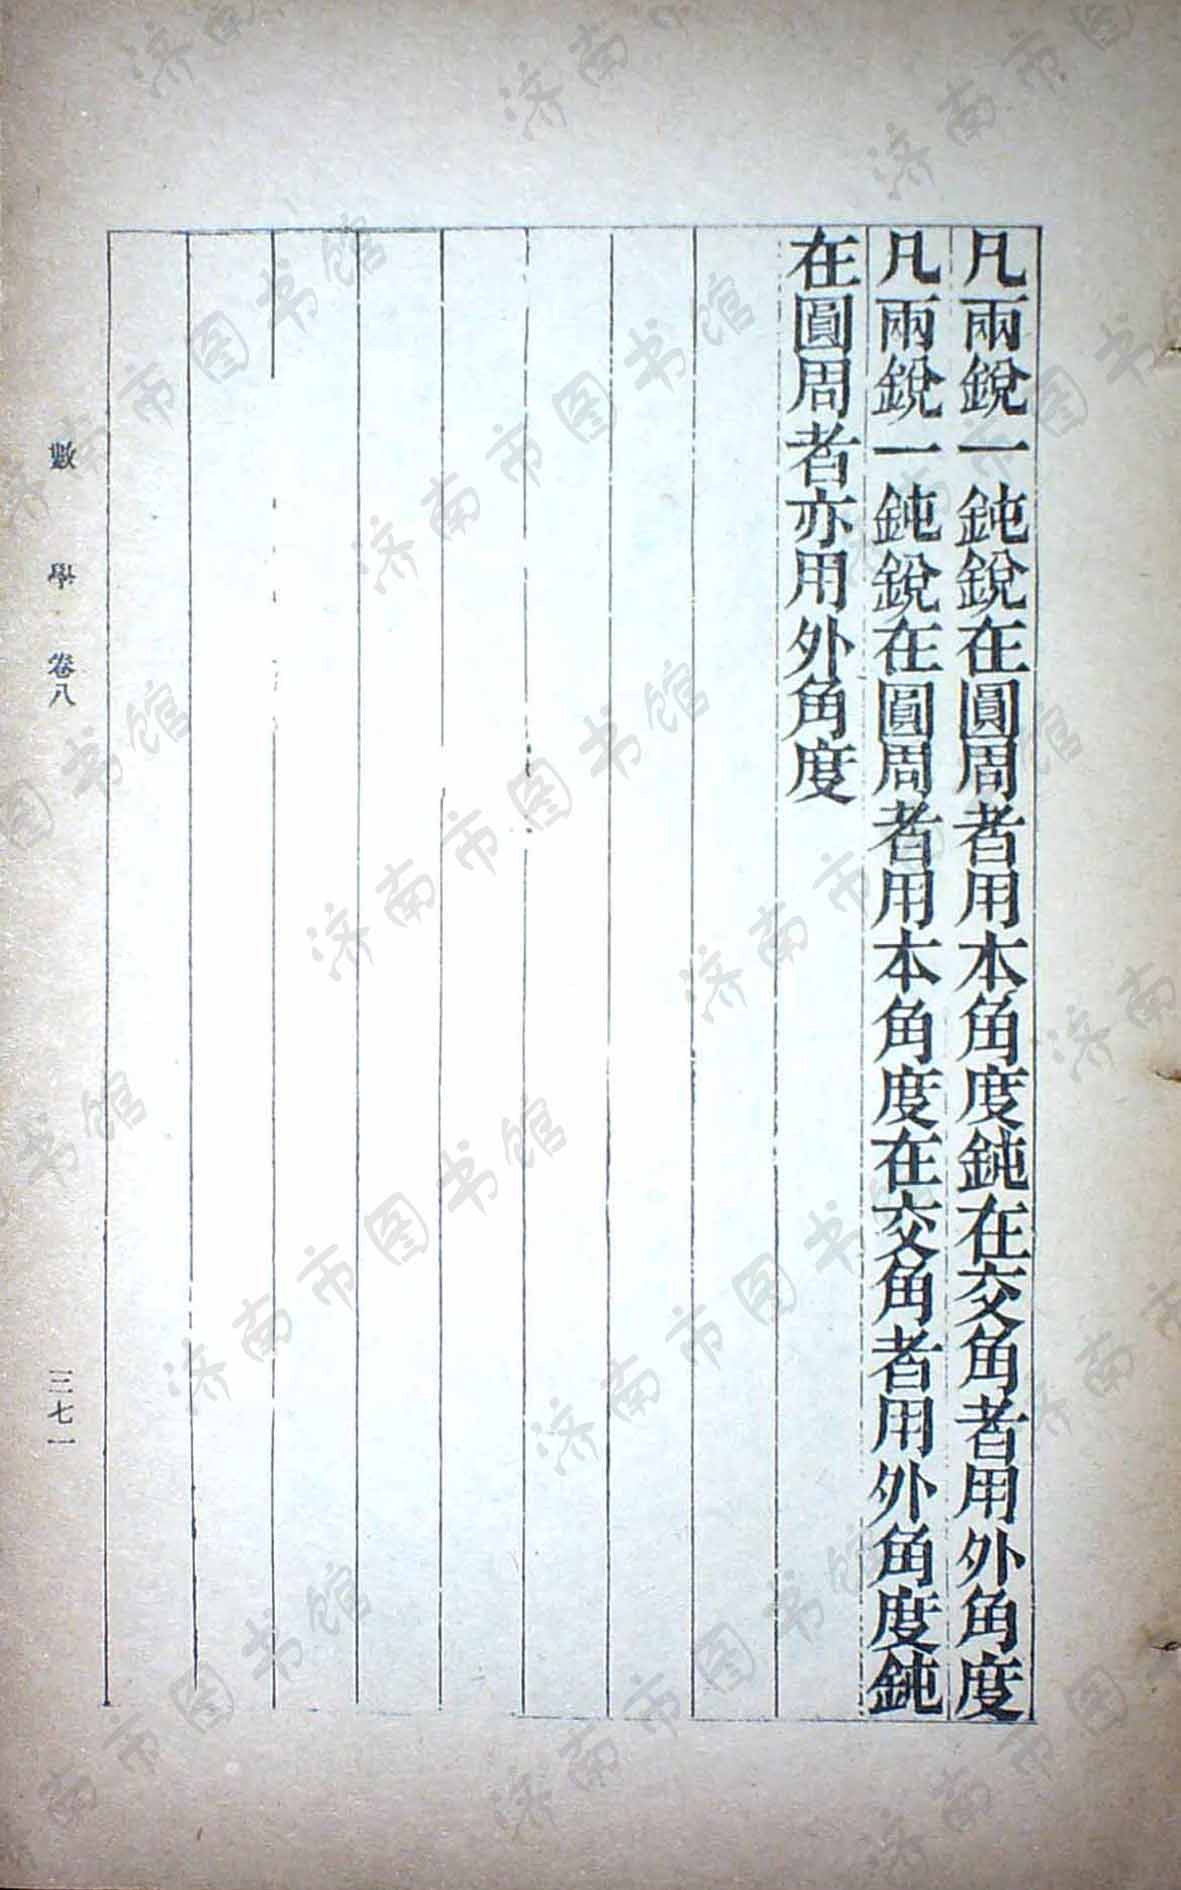 凡兩銳一鈍銳在圓周者用本角度鈍在交角者用外角度
凡兩銳一鈍銳在圓周者用本角度在交角者用外角度鈍
在圓周者亦用外角度
數學 卷八
三七一
济南市图书馆